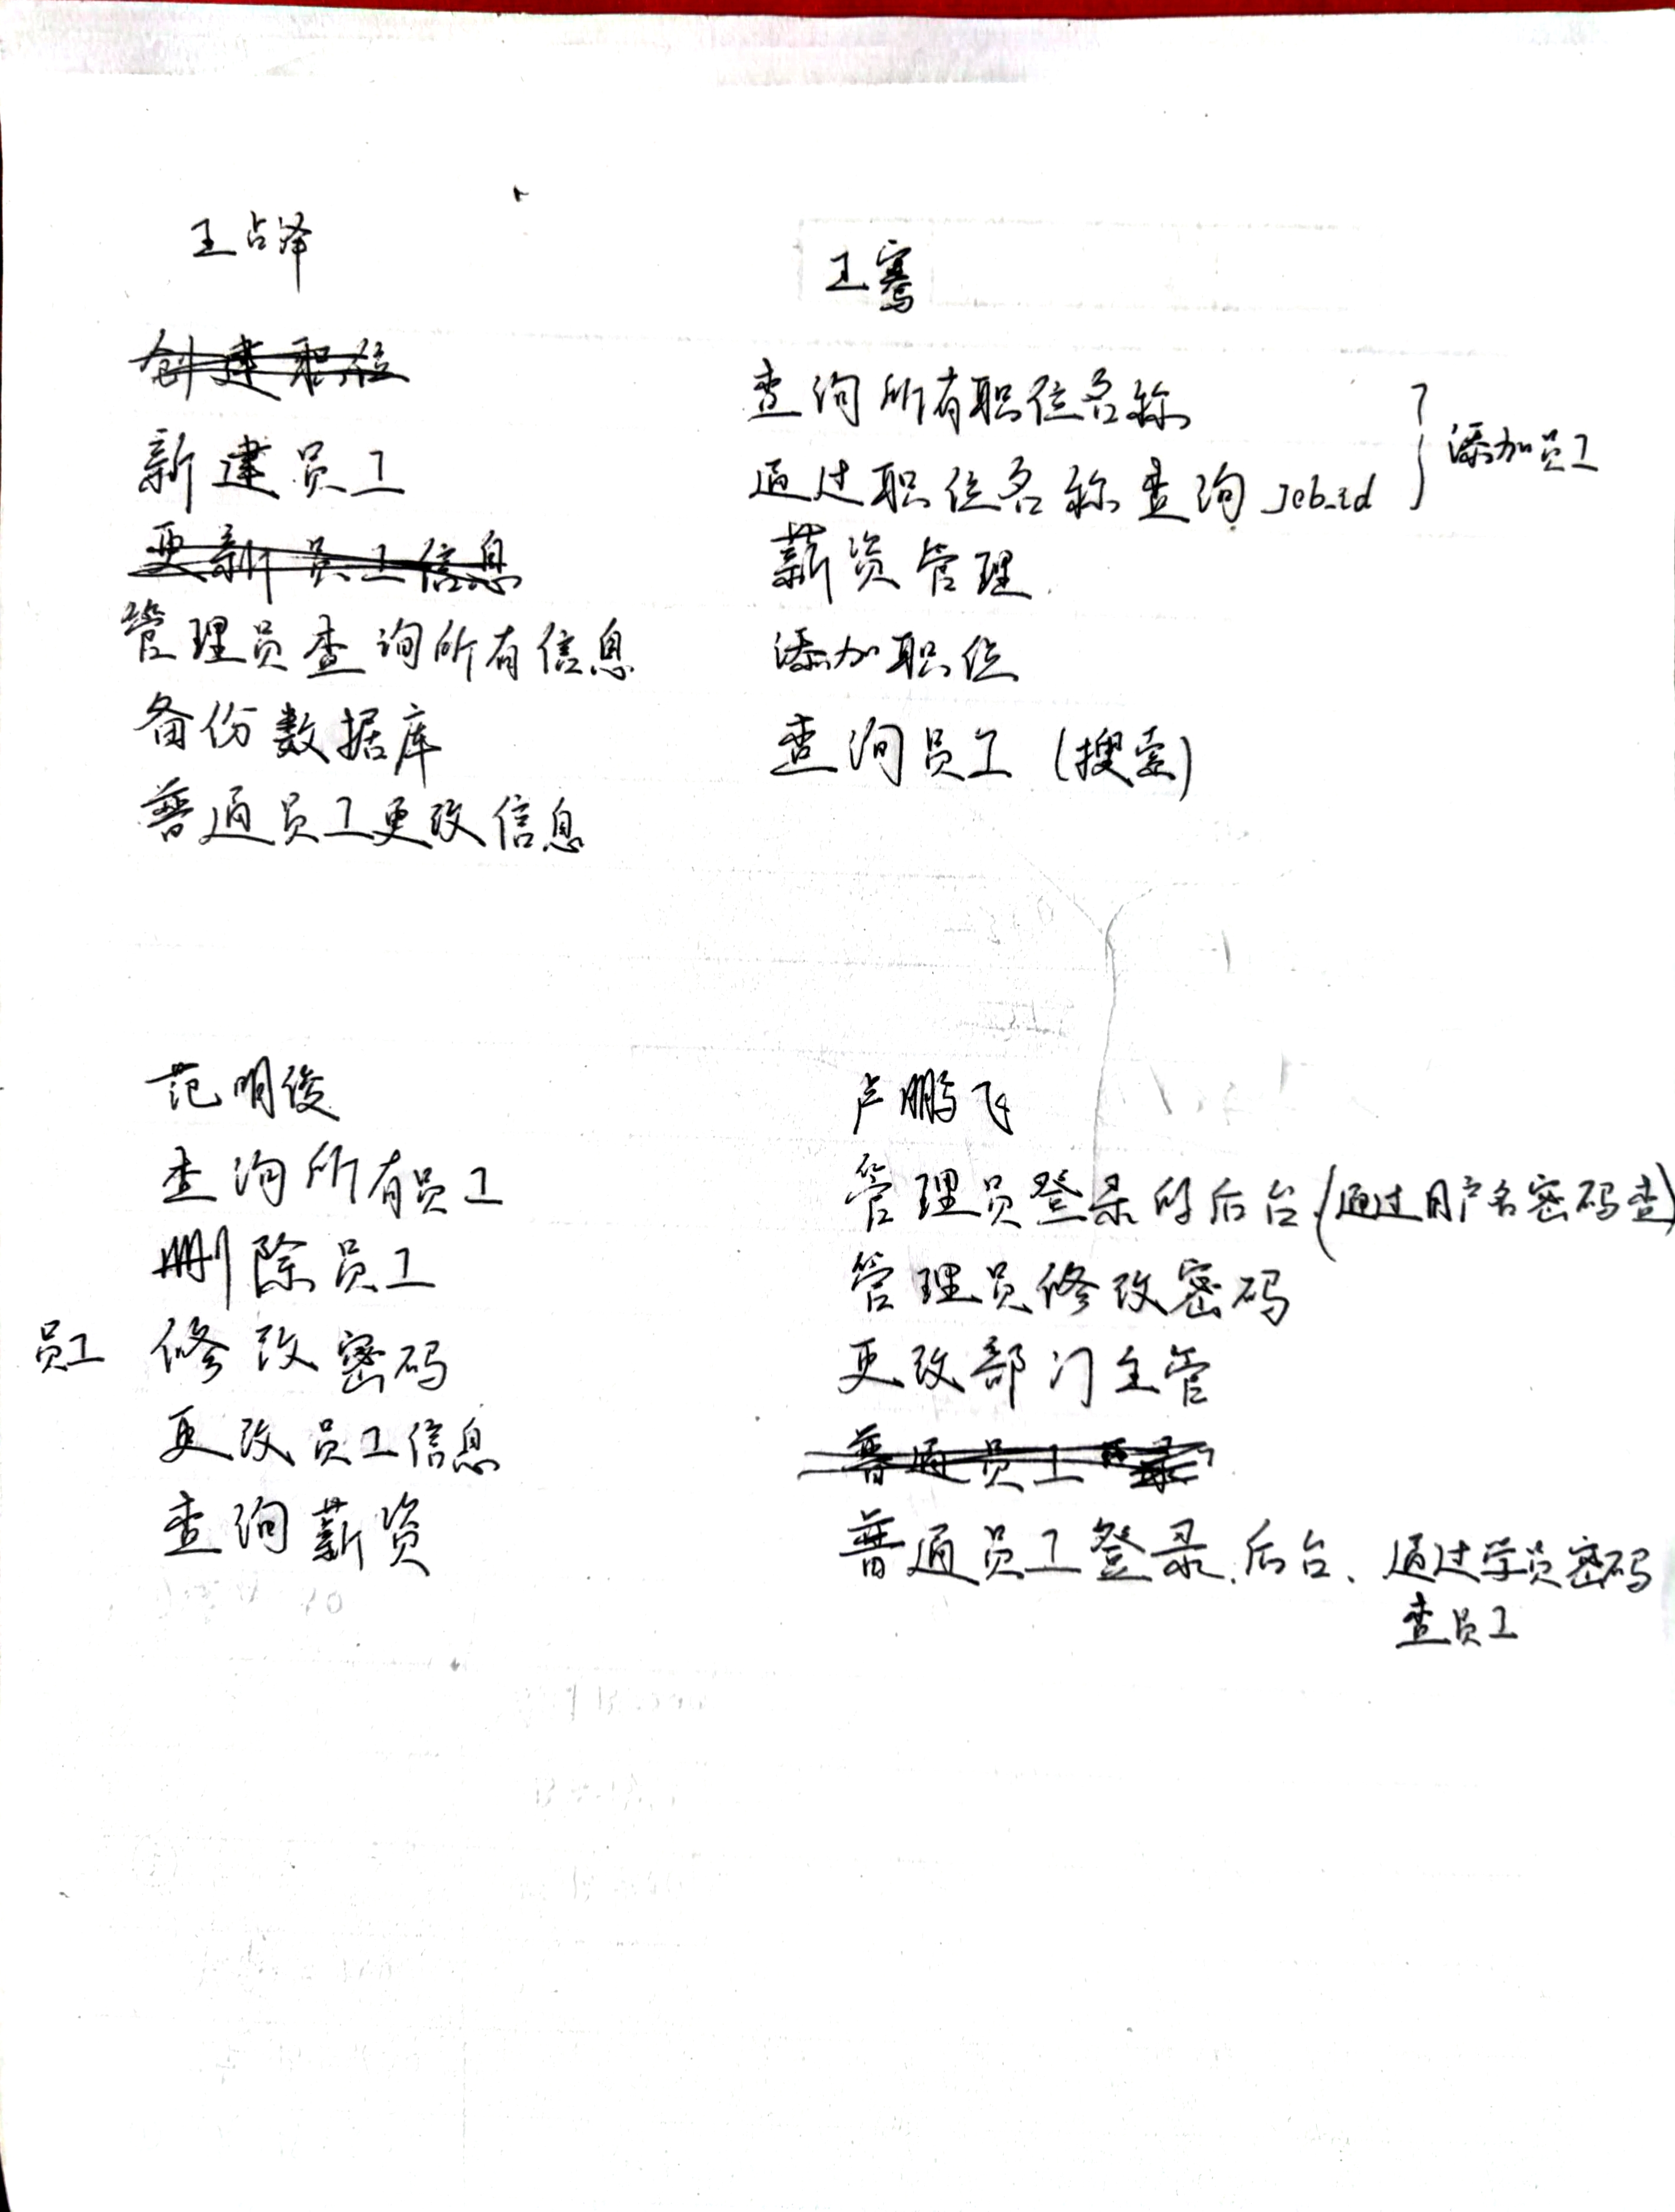 王占泽
创建职位
新建员工
更新员工信息
管理员查询所有信息
备份数据库
普通员工更改信息
王骞
查询所有职位名称
通过职位名称查询 Job_id
添加员工
薪资管理
添加职位
查询员工 (搜索)
范明俊
查询所有员工
删除员工
员工 修改密码
更改员工信息
查询薪资
卢鹏飞
管理员登录的后台 (通过用户名密码查)
管理员修改密码
更改部门主管
普通员工登录
普通员工登录、后台、通过学员密码
查员工